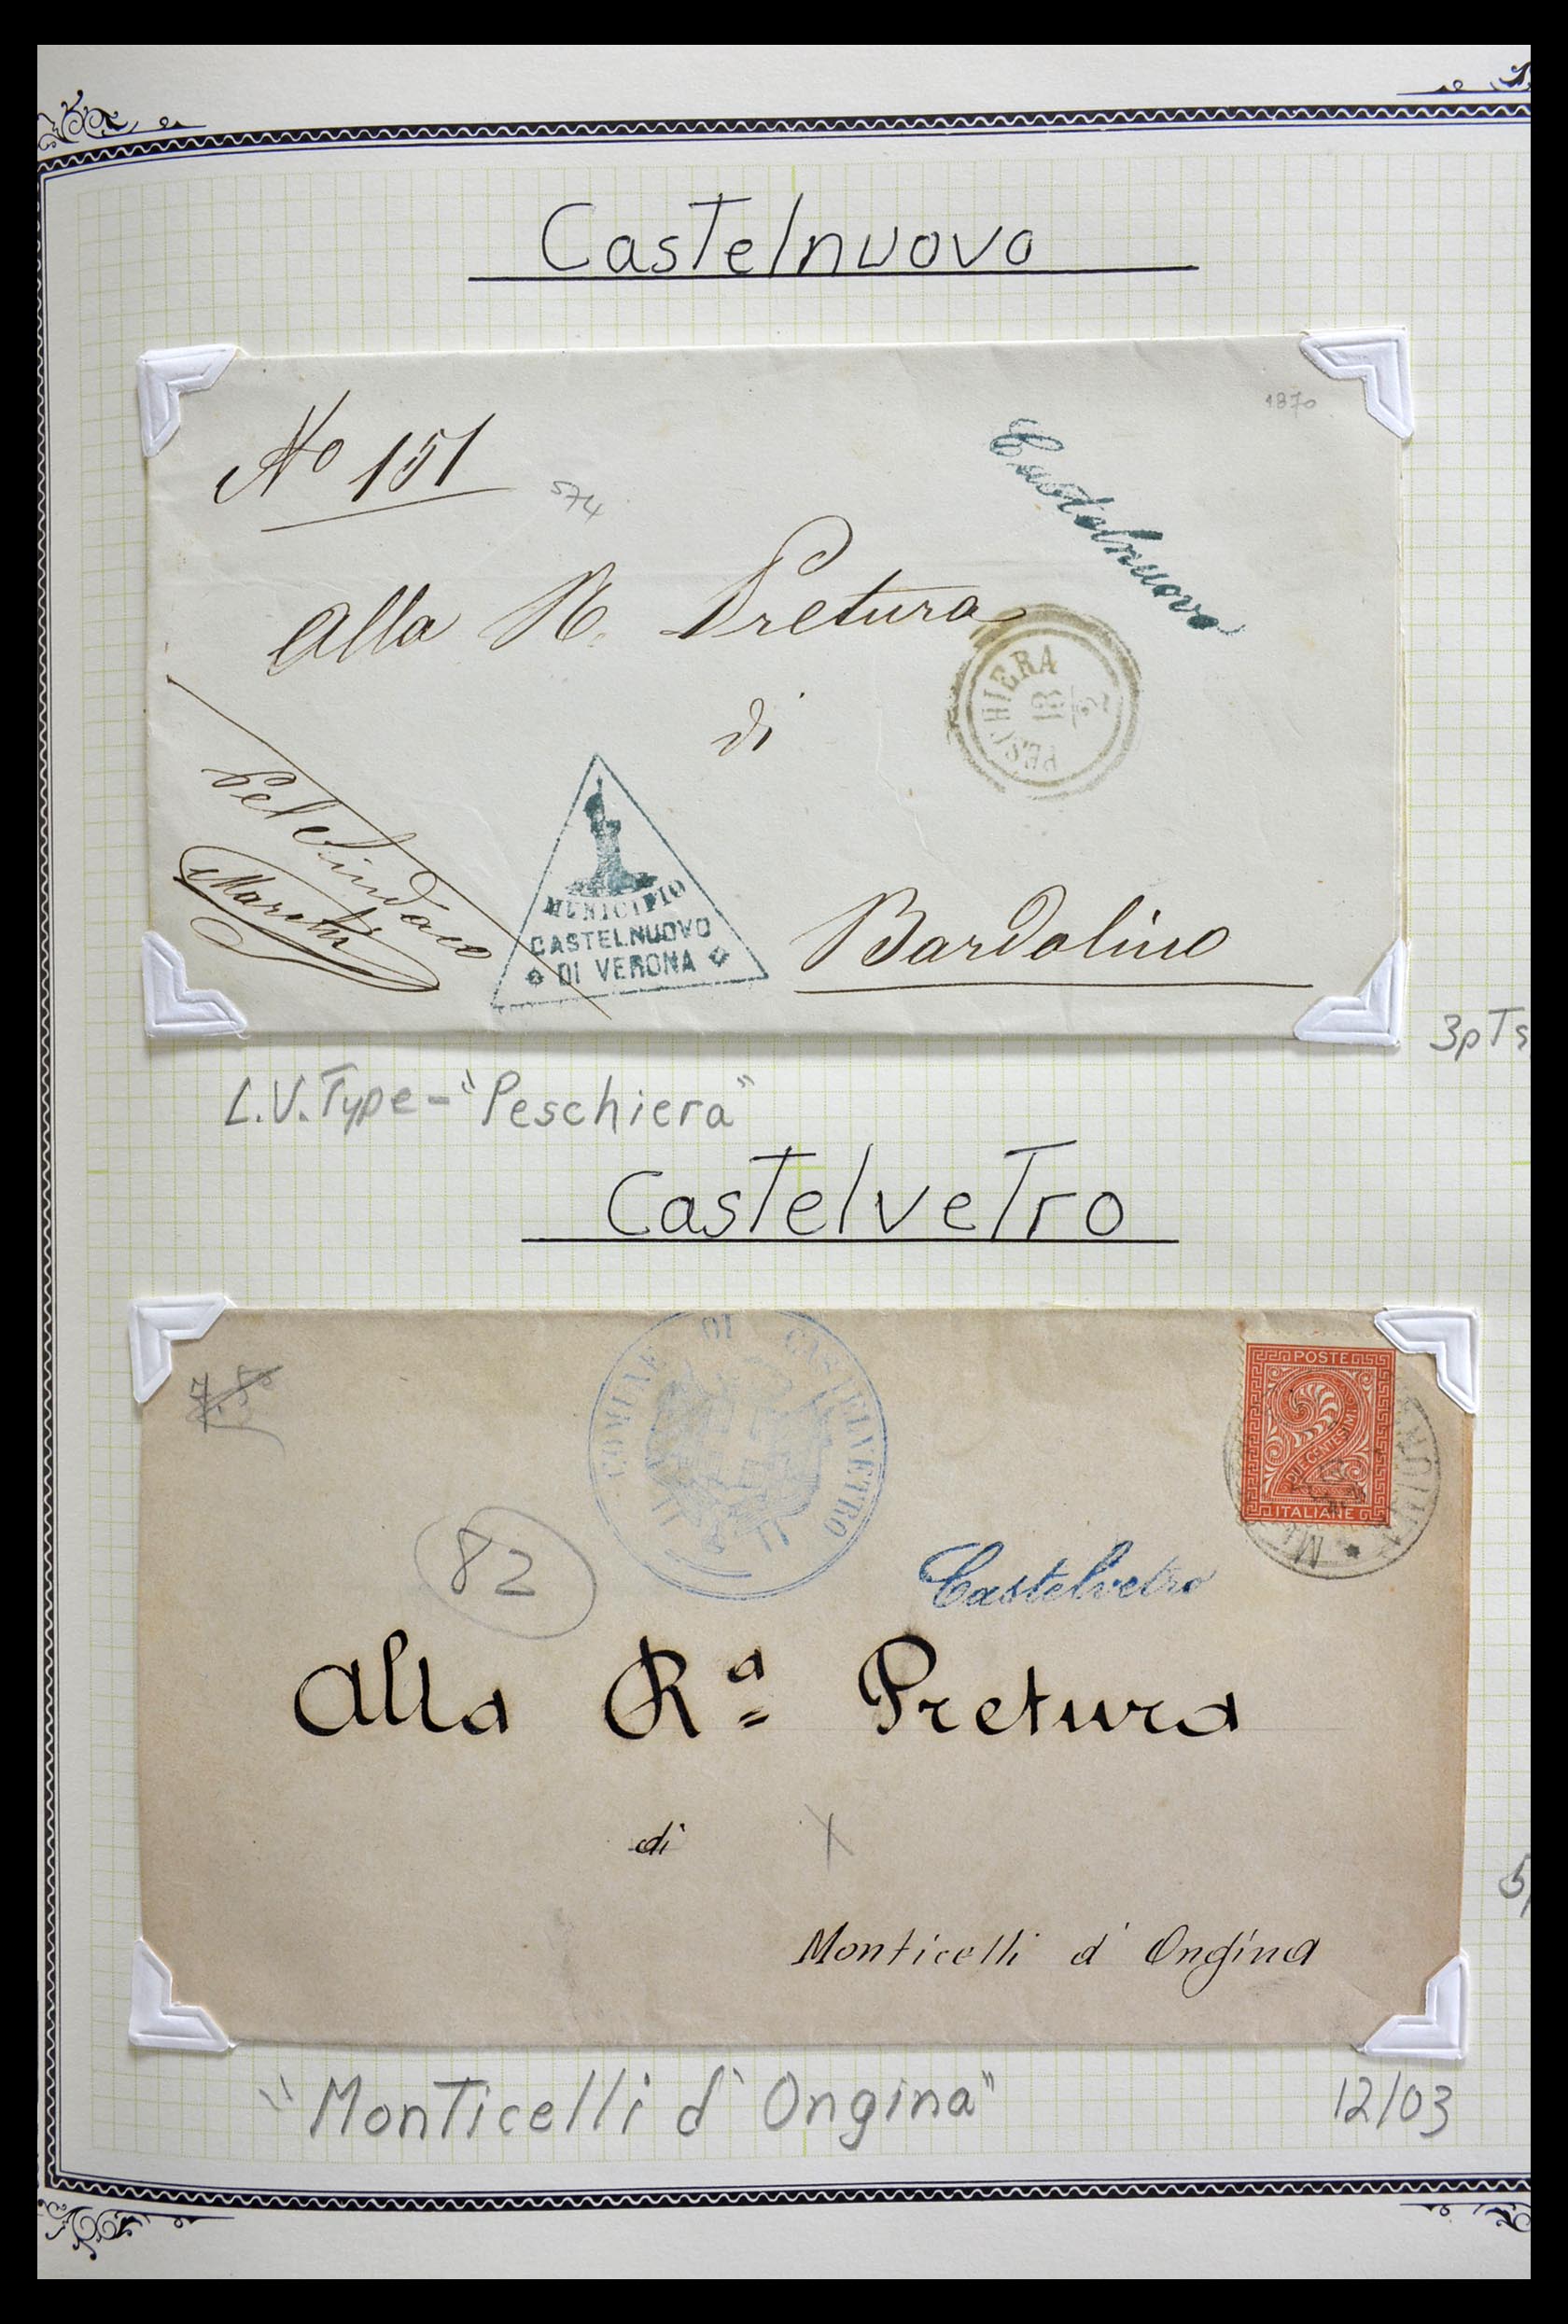 Castelnuovo
1870
No 151
574
Castelnuovo
Alla R. Pretura
PESCHIERA
18
2
di
Pel Sindaco
MUNICIPIO
CASTELNUOVO
DI VERONA
Bardolino
3pTs
L.V. Type - "Peschiera"
Castelvetro
7.50
COMUNE DI CASTELVETRO
POSTE
2
DUE CENTESIMI
ITALIANE
82
Castelvetro
Alla Rª Pretura
di
X
Monticelli d'Ongina
"Monticelli d'Ongina"
12/03